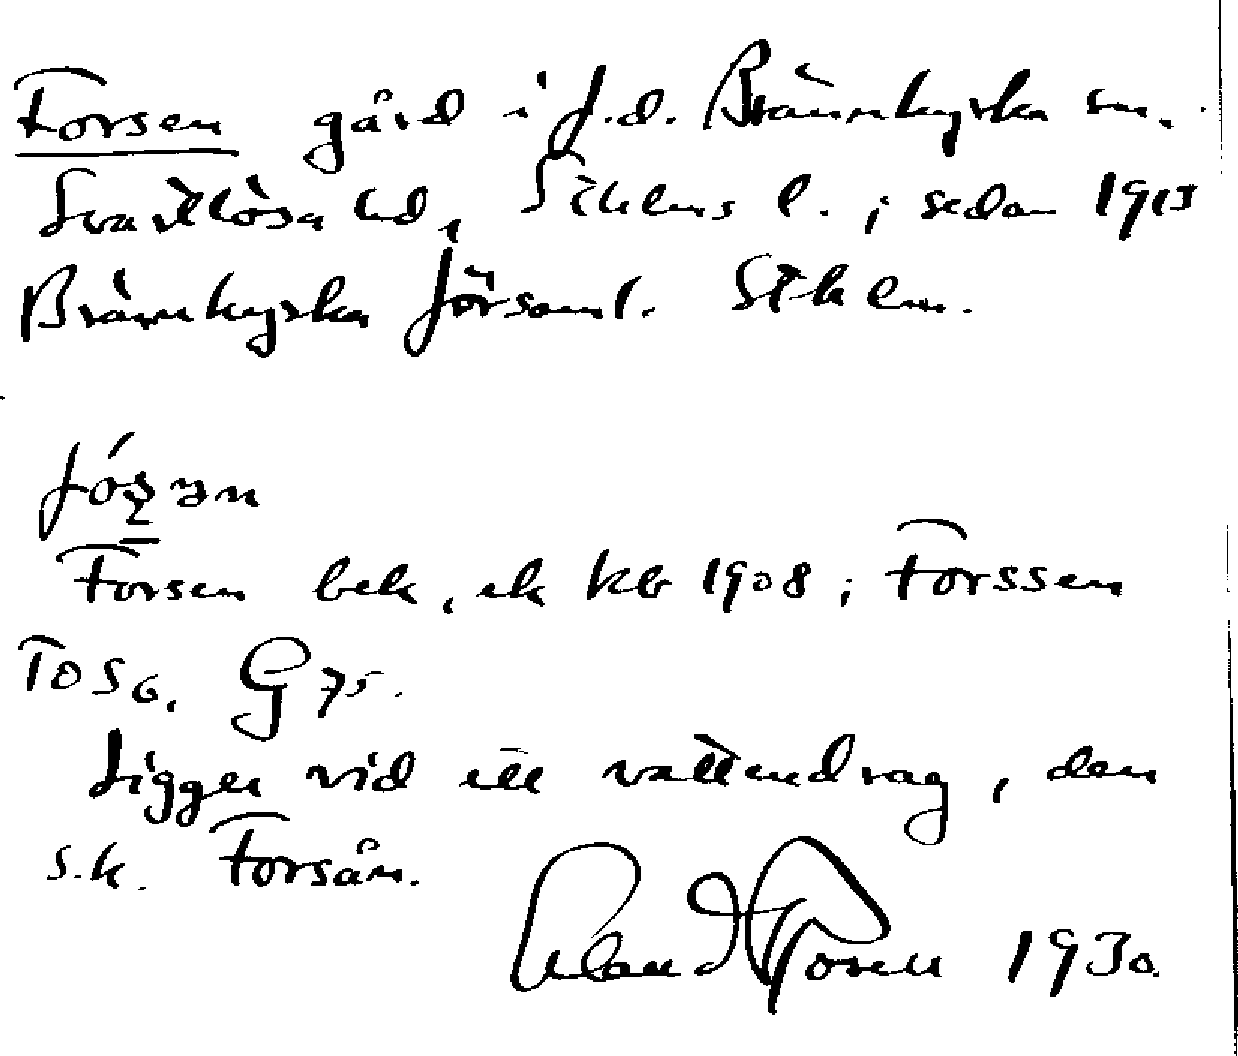 Forsen gård i f.d. Brännkyrka sn.
Svartlösa hd, Sthlms l. ; sedan 1913
Brännkyrka församl. Sthlm.
Forsen bek, ek kb 1908 ; Forssen
TOS6. G 75.
Ligger vid ett vattendrag, den
s.k. Forsån.
1930